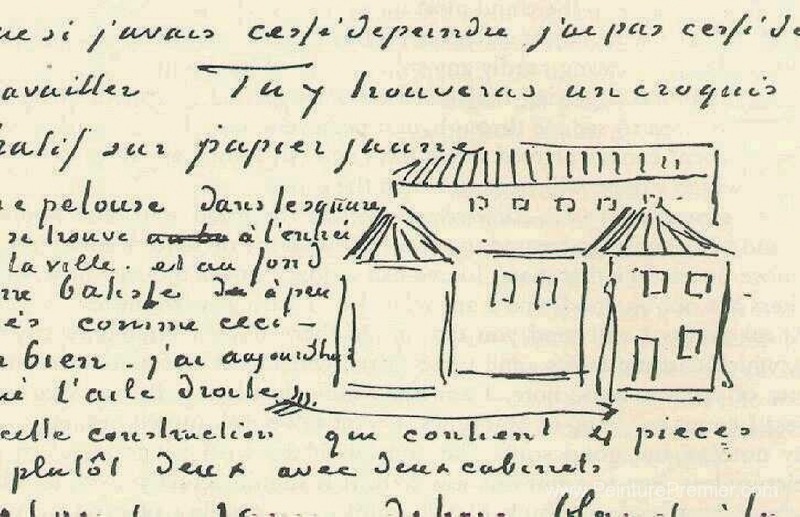 si j'avais cessé de peindre j'ai pas cessé de
availler Tu y trouveras un croquis
hatif sur papier jaune
pelouse dans le square
se trouve à l'entrée
la ville et au fond
batisse à peu
comme ceci -
bien. j'ai aujourdhui
l'aile droite
cette construction qui contient 4 pieces
plutôt deux avec deux cabinets
www.PeinturePremier.com